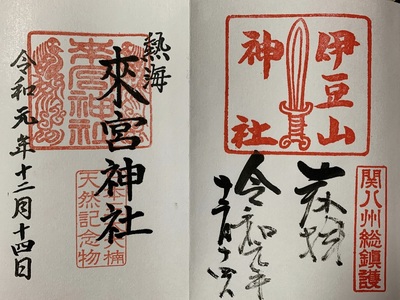 熱海
來宮神社
来宮神社
大楠
天然記念物
令和元年十二月十四日
伊豆山
神社
関八州総鎮護
奉拝
令和元年
十二月十四日